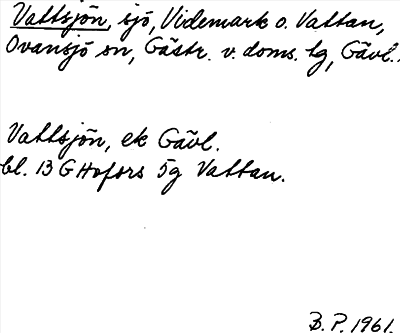 Vattsjön, sjö, Videmark o. Vattan,
Ovansjö sn, Gästr. v. doms. tg, Gävl.
Vattsjön, ek Gävl.
bl. 13 G Hofors 5g Vattan.
B. P. 1961.